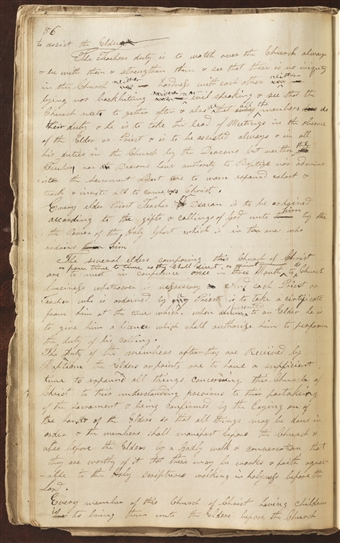 86
to assist the Elder
The Teachers duty is to watch over the Church always
& be with them & strengthen them & see that there is no iniquity
in the Church neither hardness with each other neither
lying nor backbiting nor evil speaking & see that the
Church meets to gether often & also that every member does
their duty & he is to take the lead of Meetings in the absence
of the Elder or Priest & is to be assisted always & in all
his duties in the Church by the Deacons but neither the
Teachers nor Deacons have authority to Baptize nor admin
ister the sacrament but are to warn expound exhort &
teach & invite all to come to Christ
Every elder Priest Teacher or Deacon is to be ordained
according to the gifts & callings of God unto him by the
the Power of the Holy Ghost which is in the one who
ordains him
The several elders composing this Church of Christ
are to meet in conference once in three Months to Church
from time to time as they shall direct or appoint
business whatsoever is necessary & each Priest or
teacher who is ordained by any Priest is to take a certificate
from him at the time which when to an Elder he is
to give him a licence which shall authorize him to perform
the duty of his calling
The Duty of the members after they are Received by
Baptism the Elders or priests are to have a sufficient
time to expound all things concerning this Church of
Christ to their understanding previous to their partaking
of the Sacrament & being confirmed by the laying on of
the hands of the Elders so that all things may be done in
order & the members shall manifest before the Church &
also before the Elders by a Godly walk & conversation that
they are worthy of it that there may be works & faith agree
able to the Holy Scriptures walking in holyness before the
Lord
Every member of this Church of Christ having children
to bring them unto the Elders before the Church